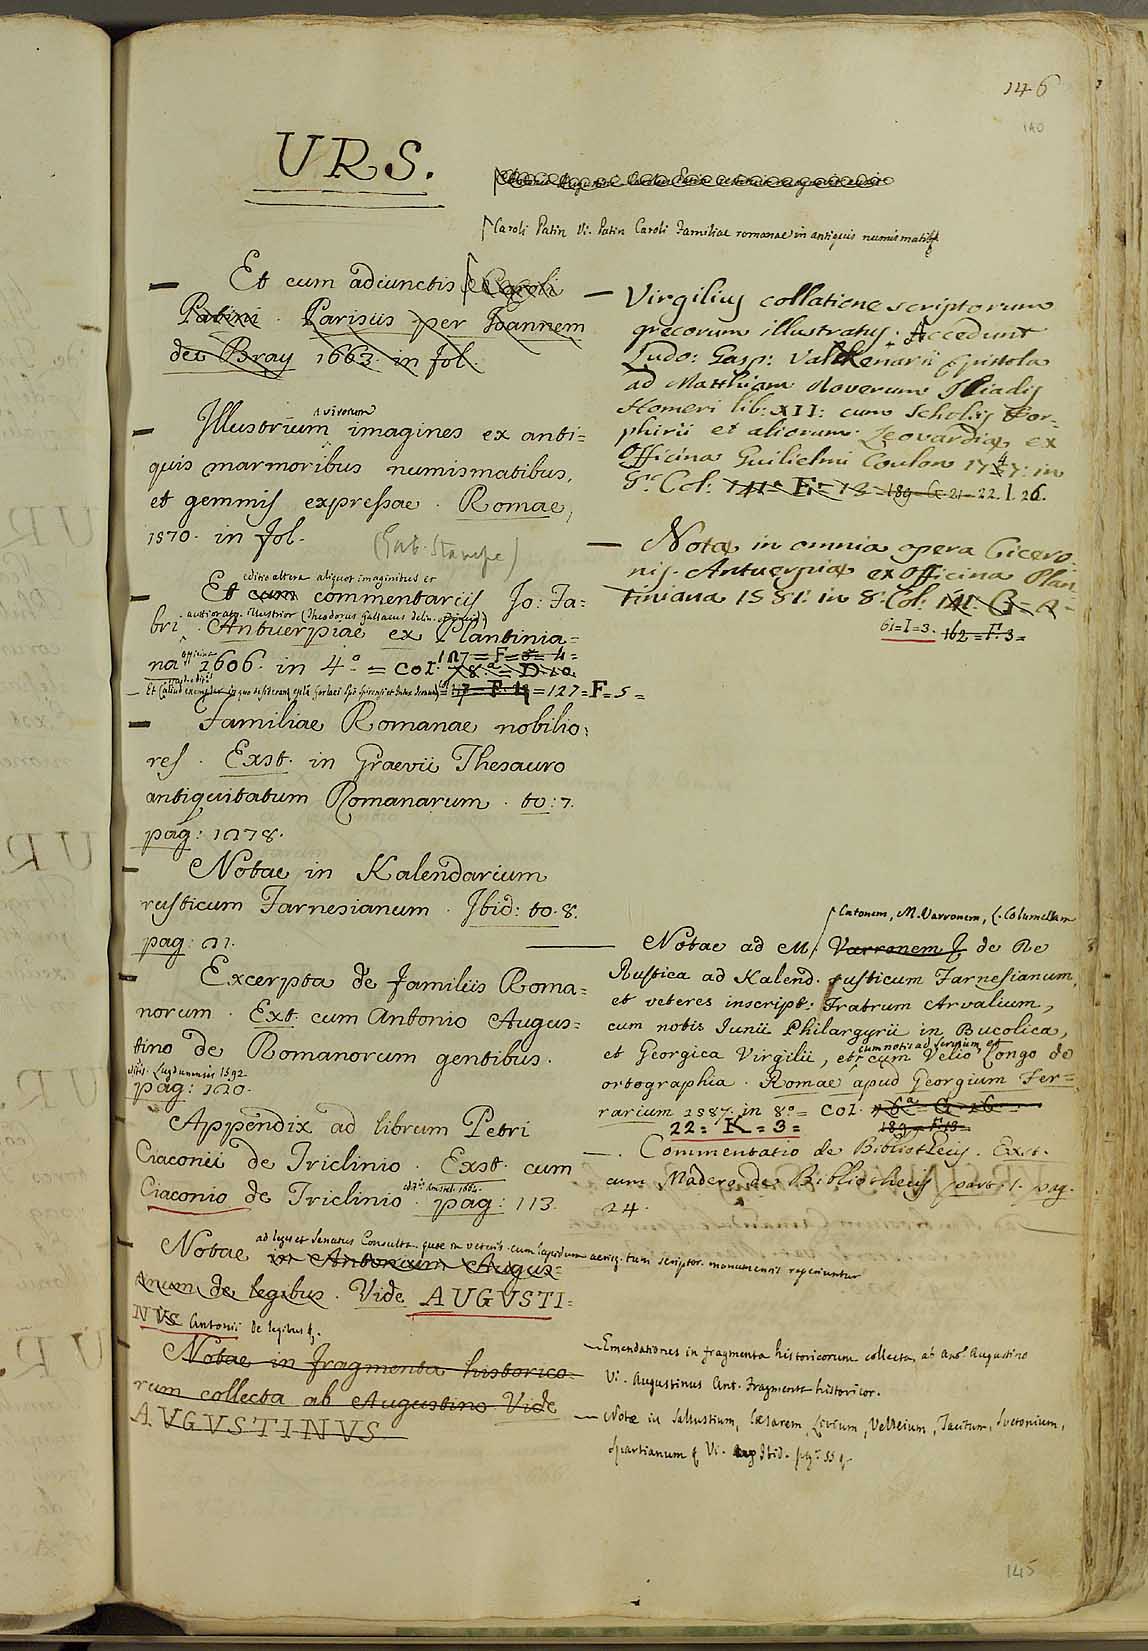 146
140
URS.
Caroli Patin Vi. Patin Caroli Familiae romanae in antiquis numismatib
— Et cum adiunctis Caroli
Patini. Parisiis per Joannem
de Bray 1663. in fol.
virorum
— Illustrium imagines ex anti=
quis marmoribus numismatibus,
et gemmis expressae. Romae,
1570. in fol.
(Gab. Stampe)
editio altera aliquot imaginibus et
— Et cum commentariis Jo: Fa=
auctior atq. illustrior (Theodorus Gallaeus delin.
bri. Antuerpiae ex Plantinia=
officina 127=F=5=4=
na 1606. in 4.° = Col. 78.ª = D. 10
= 127=F=5=
— Familiae Romanae nobilio=
res. Exst. in Graevii Thesauro
antiquitatum Romanarum. to: 7.
pag: 1178.
— Notae in Kalendarium
rusticum Farnesianum. Ibid: to. 8.
pag: 11.
— Excerpta de familiis Roma=
norum. Ext. cum Antonio Augus=
tino de Romanorum gentibus.
Lugdunensis 1592
pag: 120.
Appendix ad librum Petri
Ciaconii de Triclinio. Exst. cum
Amstel. 1664.
Ciaconio de Triclinio. pag: 113.
ad leges et Senatus Consulta quae in veterib. cum lapidum aeriq. tum scriptor. monumentis reperiuntur
— Notae in Antonium Augus=
tinum de legibus. Vide AUGVSTI=
NVS Antonii De legibus
— Notae in fragmenta historico=
rum collecta ab Augustino Vide
AVGVSTINVS
— Virgilius collatione scriptorum
grecorum illustratus. Accedunt
Ludo: Gasp: Valckenarii Epistola
ad Matthiam Roverum Iliadis
Homeri lib: XII: cum Scholiis Por=
phirii et aliorum. Leovardiae ex
Officina Guilielmi Coulon 1747: in
8.° Col: 141=E=13=189=G 21=22. I. 26.
— Notae in omnia opera Cicero
nis. Antuerpiae ex Officina Plan
tiniana 1581. in 8. Col: 141. G=2=
61=I=3. 162=F3=
Catonem, M. Varronem, L. Columellam
— Notae ad M. Varronem de Re
Rustica ad Kalend. rusticum Farnesianum,
et veteres inscript: Fratrum Arvalium,
cum notis Junii Philargyrii in Bucolica,
cum notis ad Servium, et
et Georgica Virgilii, et cum Velio Longo de
ortographia. Romae apud Georgium Fer=
rarium 1587. in 8.° = Col. 76ª=G=16
22=K=3= 189=F13=
— Commentatio de Bibliothecis. Exst.
cum Madero de Bibliothecis part: 1. pag.
24.
— Emendationes in fragmenta historicorum collecta ab Ant.° Augustino
Vi. Augustinus Ant. Fragmenta historicor.
— Notae in Sallustium, Caesarem, Livium, Velleium, Tacitum, Suetonium,
Spartianum Vi. Ibid.
145